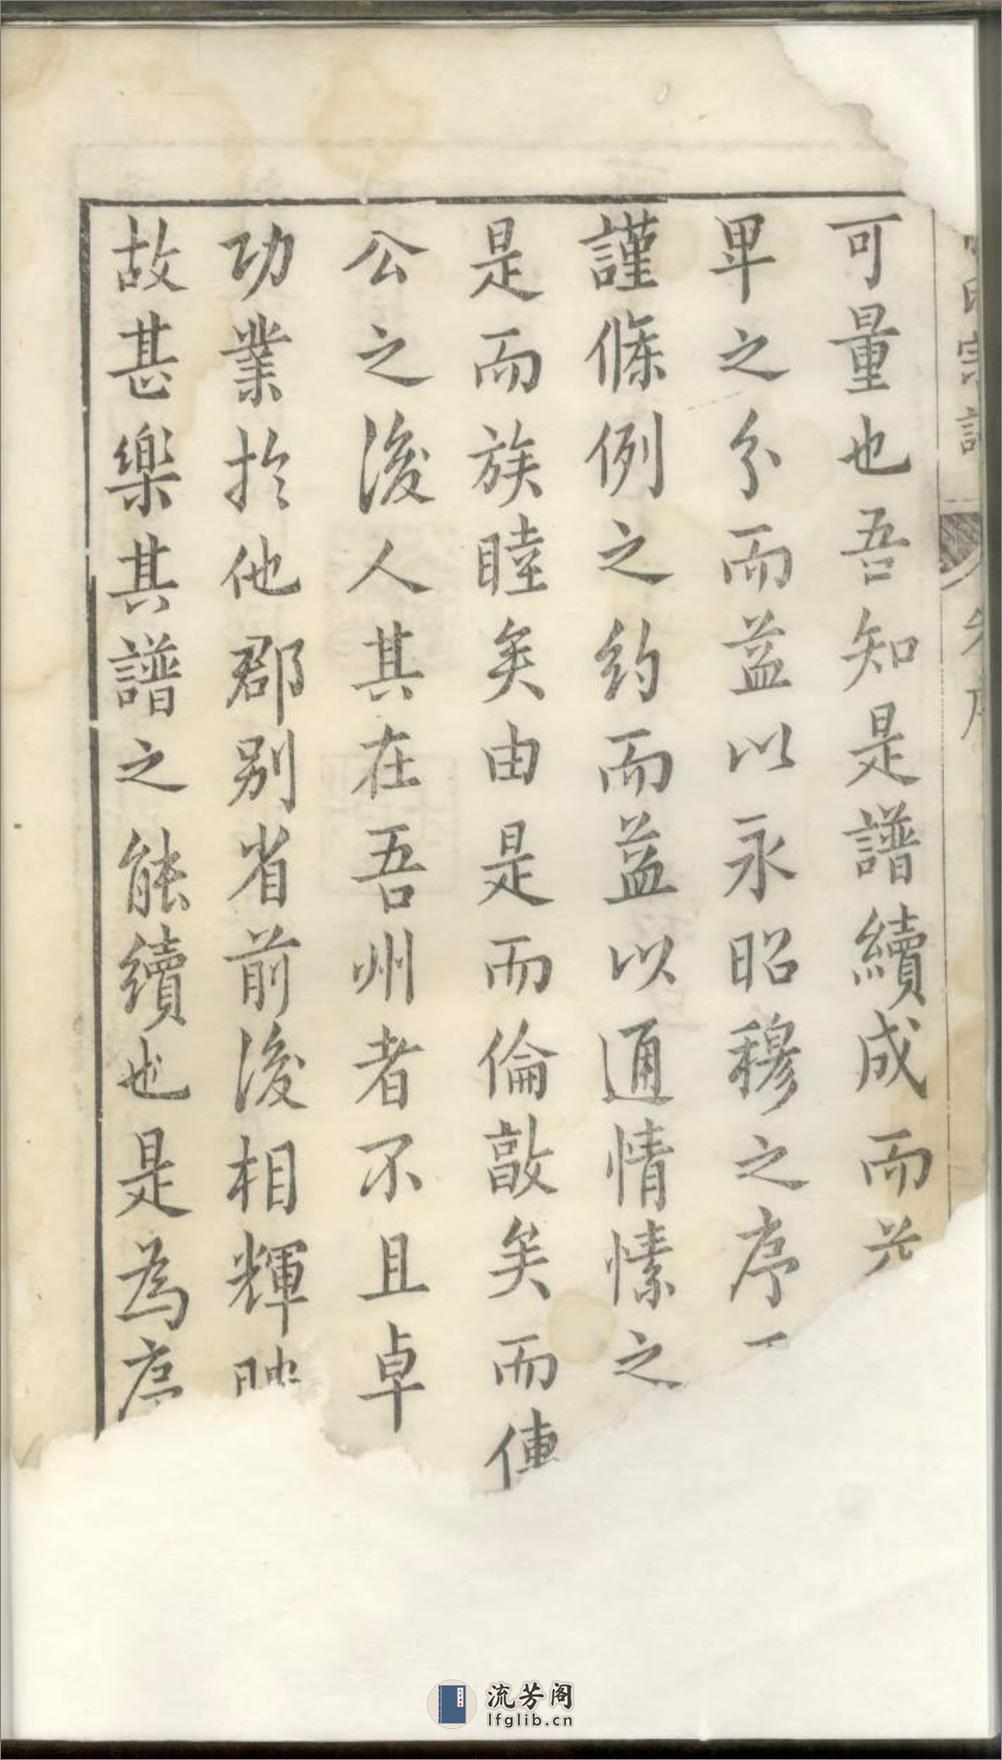 宗譜
序
可量也吾知是譜續成而
畢之分而益以永昭穆之序
謹條例之約而益以通情愫之
是而族睦矣由是而倫敦矣而
公之後人其在吾州者不且卓
功業於他郡别省前後相輝映
故甚樂其譜之能續也是為序
流芳阁
lfglib.cn